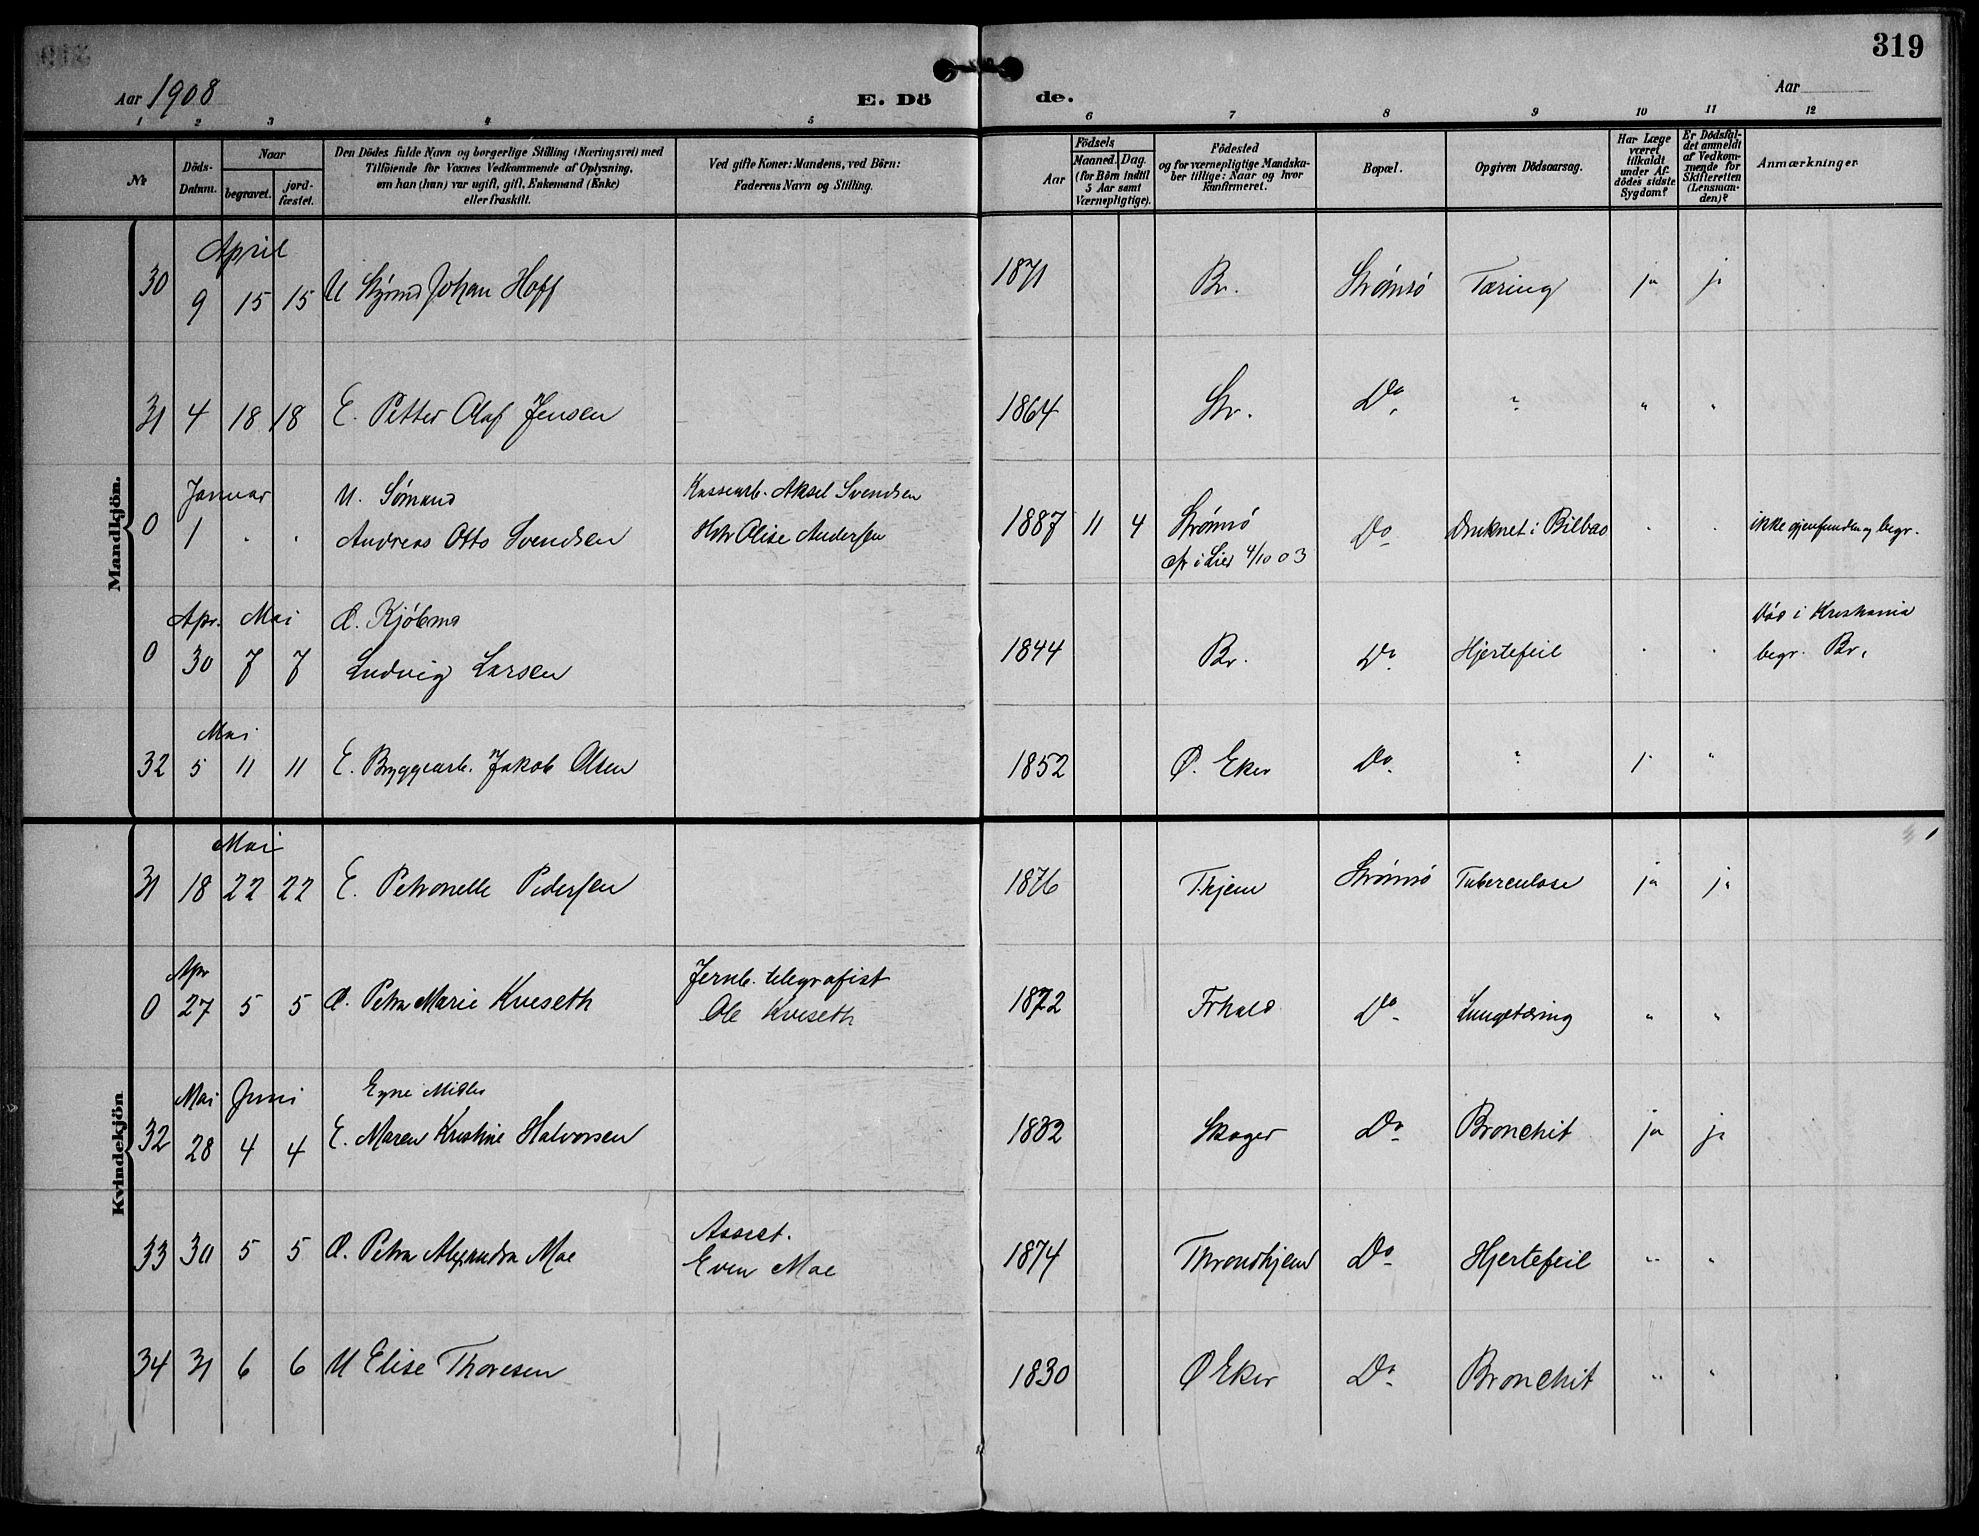 319
Aar 1908
E. Dö de.
Aar
1 2 3 4 5 6 7 8 9 10 11 12
№
Döds-Datum.
Naar
begravet.
jord-fæstet.
Den Dödes fulde Navn og borgerlige Stilling (Næringsvei) med
Tilföiende for Voxnes Vedkommende af Oplysning,
om han (hun) var ugift, gift, Enkemand (Enke)
eller fraskilt.
Ved gifte Koner: Mandens, ved Börn:
Faderens Navn og Stilling.
Födsels
Aar
Maaned. Dag.
(for Börn indtil
5 Aar samt
Værnepligtige).
Födested
og for værnepligtige Mandska-
ber tillige: Naar og hvor
konfirmeret.
Bopæl.
Opgiven Dödsaarsag.
Har Læge
været
tilkaldt
under Af-
dödes sidste
Sygdom?
Er Dödsfal-
det anmeldt
af Vedkom-
mende for
Skifteretten
(Lensman-
den)?
Anmærkninger
Mandkjön.
April
30 9 15 15 U Styrmd Johan Hoff 1871 Br. Strømsö Tæring ja ja
31 4 18 18 E. Petter Olaf Jensen 1864 Str. Do " " "
Januar U. Sömand Kassearb. Aksel Svendsen
0 1 " " Andreas Otto Svendsen Hstr Elise Andersen 1887 11 4 Strömsö Do Druknet i Bilbao " " ikke gjenfunden og begr.
cfr i Lier 4/10 03
Apr. Mai G. Kjöbmd Död i Kristiania
0 30 7 7 Ludvig Larsen 1844 Br. Do Hjertefeil " " begr. Br.
Mai
32 5 11 11 E. Bryggearb. Jakob Olsen 1852 Ø. Eker Do " "
Kvindekjön
Mai
31 18 22 22 E. Petronelle Pedersen 1876 Thjem Strömsö Tuberculose ja ja
Apr Jernb. telegrafist
0 27 5 5 G. Petra Marie Kveseth Ole Kveseth 1872 Frhald Do Lungetæring " "
Mai Juni Egne Midler
32 28 4 4 E. Maren Kristine Halvorsen 1832 Skoger Do Bronchit ja ja
Assist.
33 30 5 5 G. Petra Alexandra Moe Even Moe 1874 Throndhjem Do Hjertefeil " "
34 31 6 6 U Elise Thoresen 1830 Ø Eker Do Bronchit " "